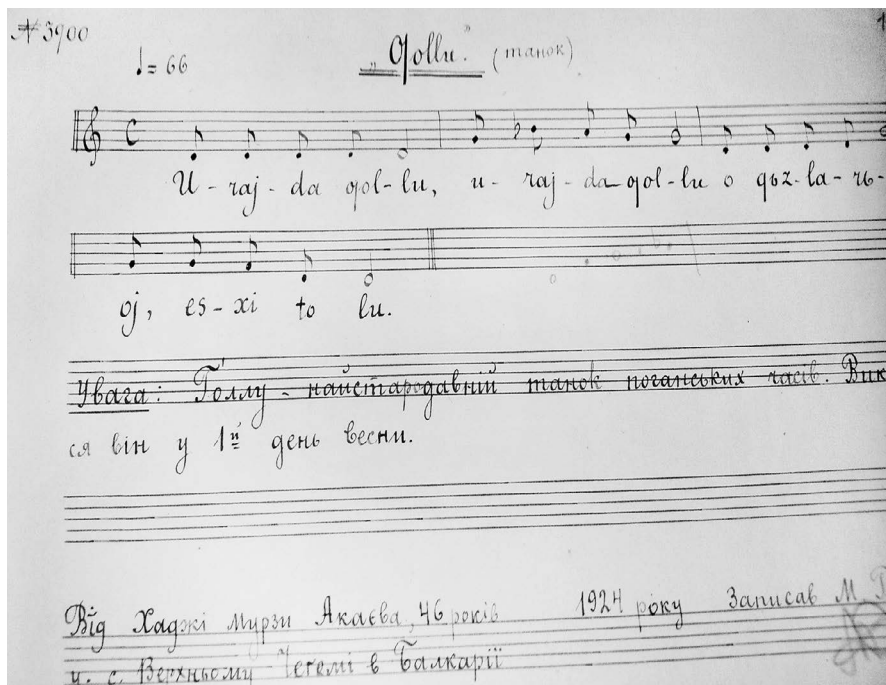 № 3900
♩= 66 „Qollu." (танок)
U-raj-da qol-lu, u-raj-da qol-lu o qьz-la-rь-
oj, es-xi to lu.
Увага: Ґоллу - найстародавній танок поганських часів. Вик
ся він у 1й день весни.
Від Хаджі Мурзи Акаєва, 46 років 1924 року Записав М.
у. с. Верхньому Чегемі в Балкарії